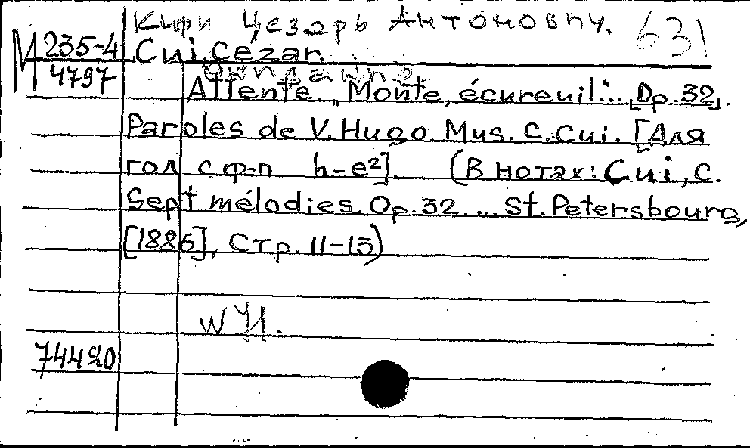 Кюи Цезарь Антонович. 631
M 235-4 Cui, Cezar.
4797 Ожидание
Attente „Monte, écureuil“... [Op. 32].
Paroles de V. Hugo. Mus. C. Cui. [Для
гол. с ф-п. h-e²]. (В нотах: Cui, C.
Sept mélodies. Op. 32. ... St. Petersbourg,
[1886], Стр. 11-13)
74420